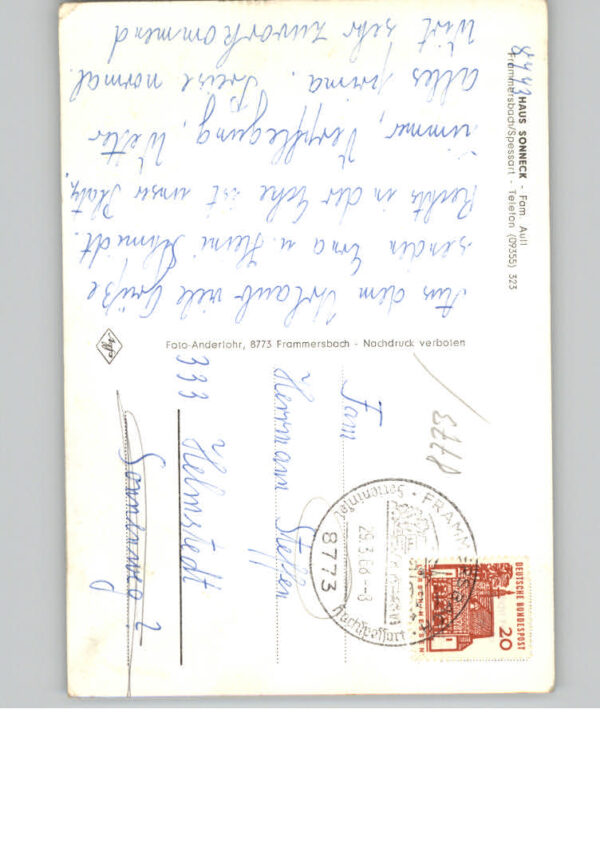 HAUS SONNECK - Fam. Aull
Frammersbach/Spessart - Telefon (09355) 323
Aus dem Urlaub viele Grüße
senden Erna u. Heini Schmidt.
Rechts in der Ecke ist unser Platz.
Zimmer, Verpflegung, Wetter
alles prima. Preise normal.
Wirt sehr zuvorkommend
Foto-Anderlohr, 8773 Frammersbach - Nachdruck verboten
Agfa
8773
Fam
Herrmann Steffen
333 Helmstedt
DEUTSCHE BUNDESPOST
20
FRAMMERSBACH
29.3.66-8
8773